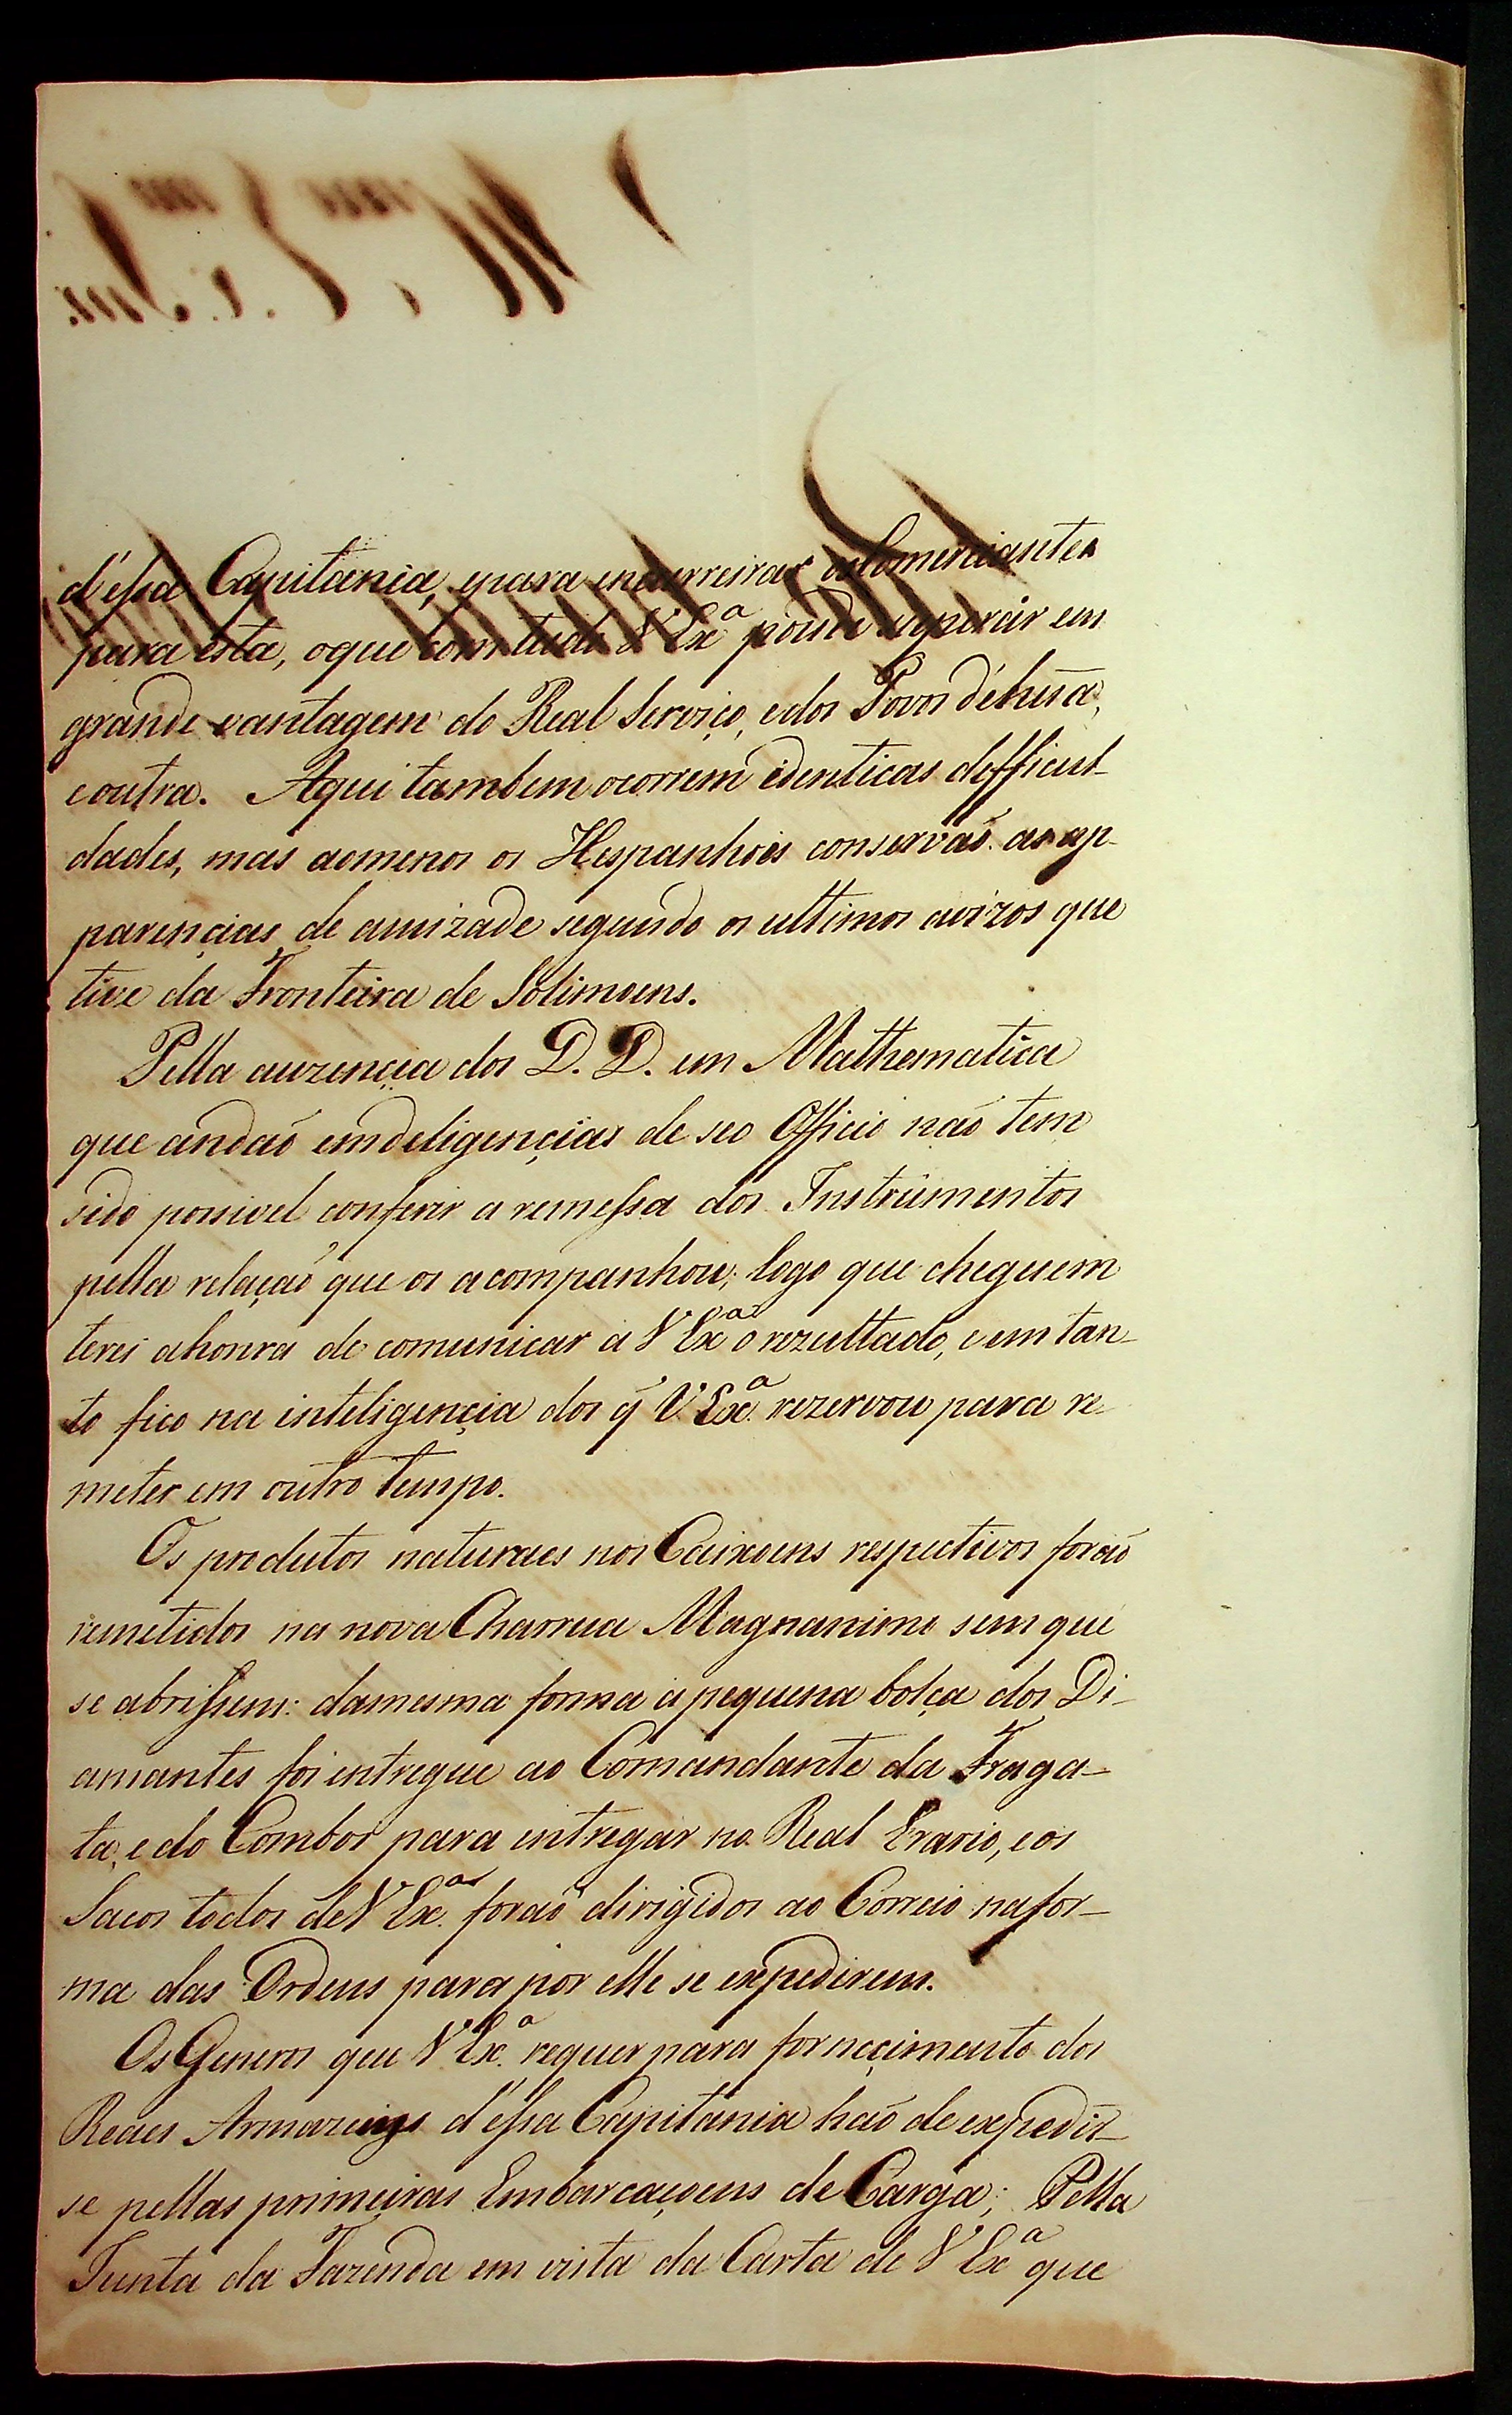 d'essa Capitania, epara encarreirar os Comerciantes
para esta, oque com tudo V Ex.ª poude superár em
grande vantagem do Real Serviço, edos Povos d'huã,
eoutra. Aqui tambem ocorrem identicas defficul-
dades, mas aomenos os Hespanhoes conservaõ as ap-
parençias de amizade segundo os ultimos avizos que
tive da Fronteira de Solimoens.
Pella auzençia dos D. D. em Mathematica
que andaõ emdeligençias de seo Officio naõ tem
sido possivel conferir a remessa dos Instrumentos
pella relaçaõ que os acompanhou; logo que cheguem
terei ahonra de comunicar a V Ex.ª o rezultado, e em tan-
to fico na inteligençia dos q̃ V. Ex.ª rezervou para re-
meter em outro tempo.
Os produtos naturaes nos Caixoens respectivos foraõ
remetidos na nova Charrua Magnanimo sem que
se abrissem: damesma forma a pequena bolça dos Di-
amantes foi entregue ao Comandante da Fraga-
ta, e do Comboi para entregar no Real Erario, eos
Sacos todos de V Ex.ª foraõ dirigidos ao Correio nafor-
ma das Ordens para por elle se expedirem.
Os Generos que V Ex.ª requer para forneçimento dos
Reaes Armazeins d'essa Capitania haõ de expedir-
se pellas primeiras Embarcaçoens de Carga; Pella
Junta da Fazenda em vista da Carta de V Ex.ª que